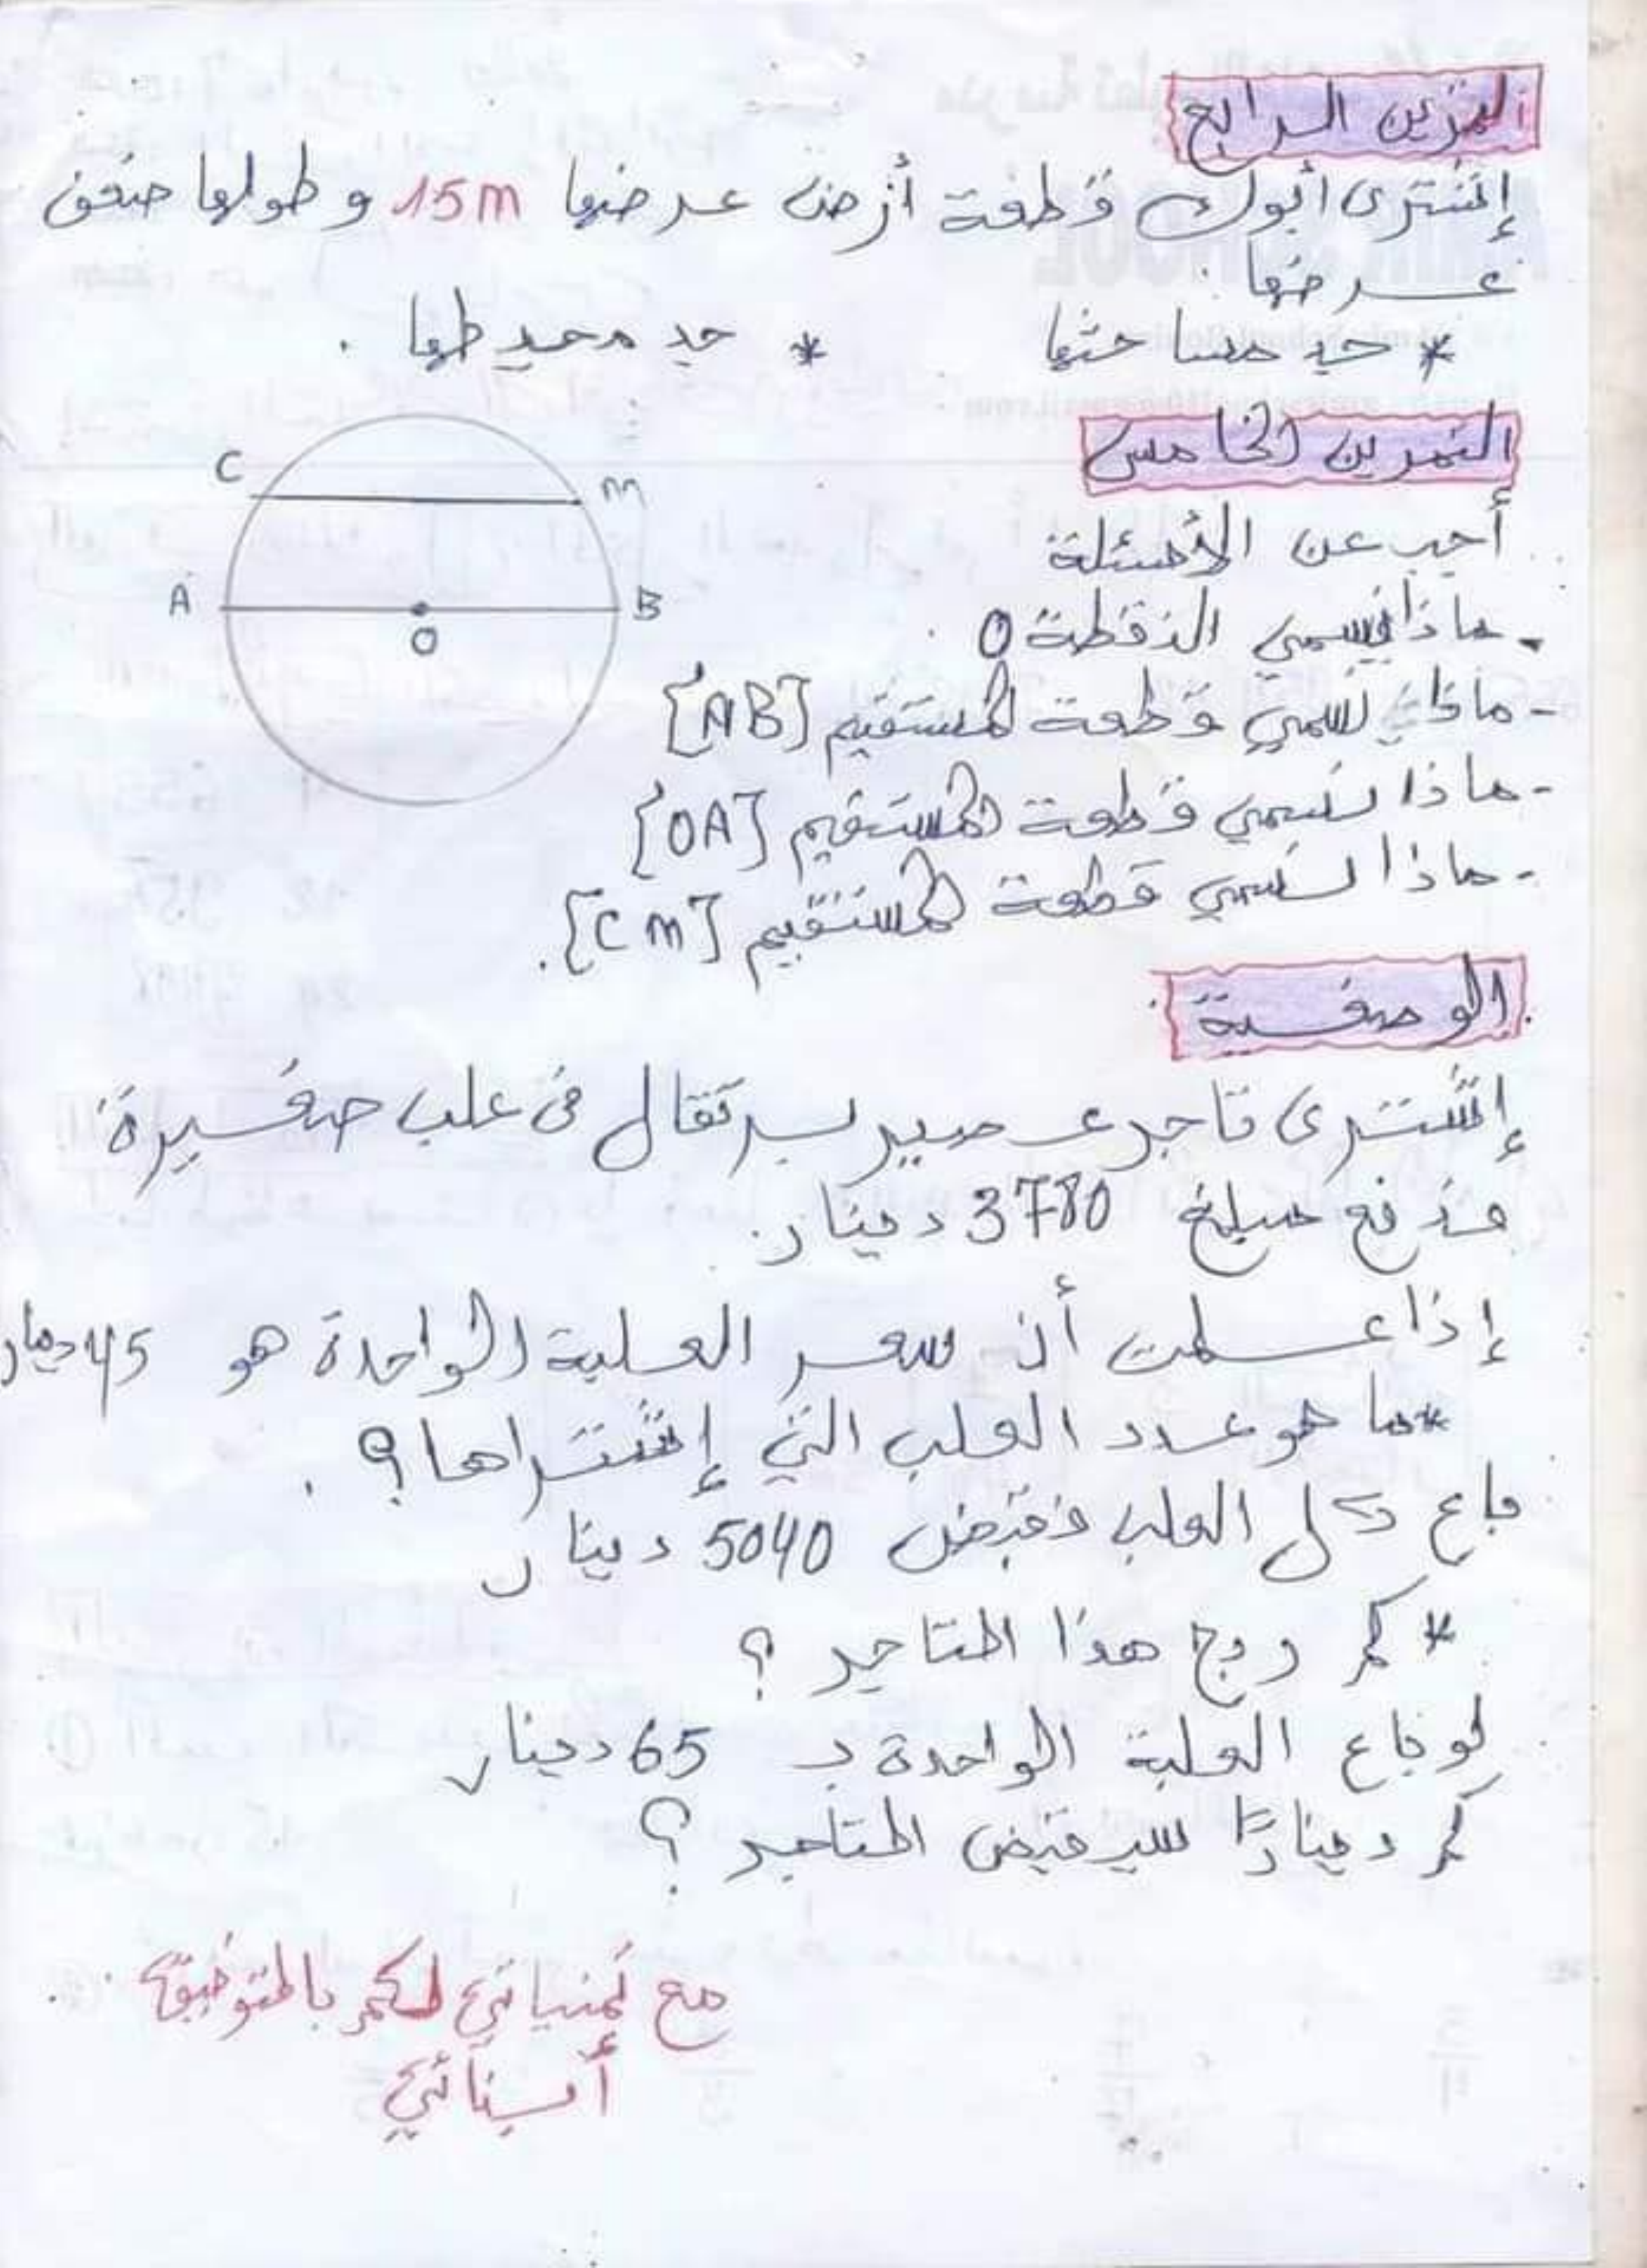 التمرين الرابع
إشترى أبوك قطعة أرض عرضها 15m و طولها ضعف
عرضها.
* جد مساحتها * جد محيطها.
التمرين الخامس
أجب عن الأسئلة
- ماذا نسمي النقطة O.
- ماذا نسمي قطعة المستقيم [AB]
- ماذا نسمي قطعة المستقيم [OA]
- ماذا نسمي قطعة المستقيم [CM].
C
M
A
B
O
الوضعية
إشترى تاجر عصير برتقال في علب صغيرة
فدفع مبلغ 3780 دينار.
إذا علمت أن سعر العلبة الواحدة هو 45 دينار
* ما هو عدد العلب التي إشتراها؟.
باع كل العلب فقبض 5040 دينار
* كم ربح هذا التاجر؟
لو باع العلبة الواحدة بـ 65 دينار
كم دينارًا سيقبض التاجر؟
مع تمنياتي لكم بالتوفيق
أبنائي